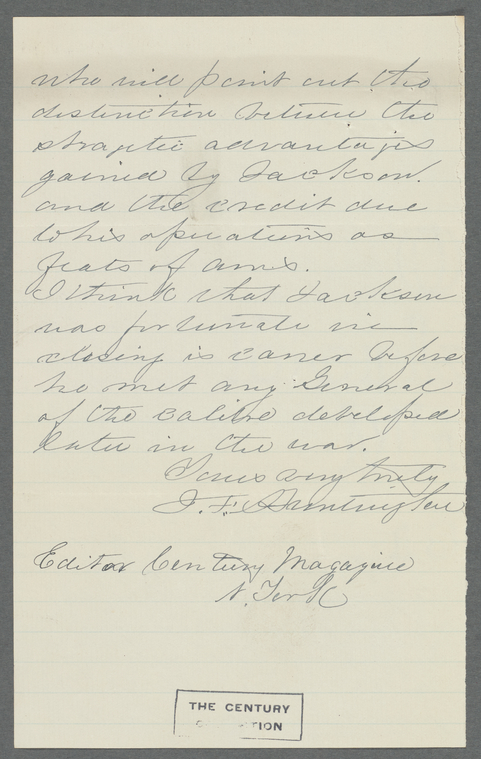 who will point out the
distinction between the
stragetic advantages
gained by Jackson.
and the credit due
to his operations as
feats of arms.
I think that Jackson
was fortunate in
closing is career before
he met any General
of the calibre developed
later in the war.
Yours very truly
J. F. Huntington
Editor Century Magazine
N. York
THE CENTURY